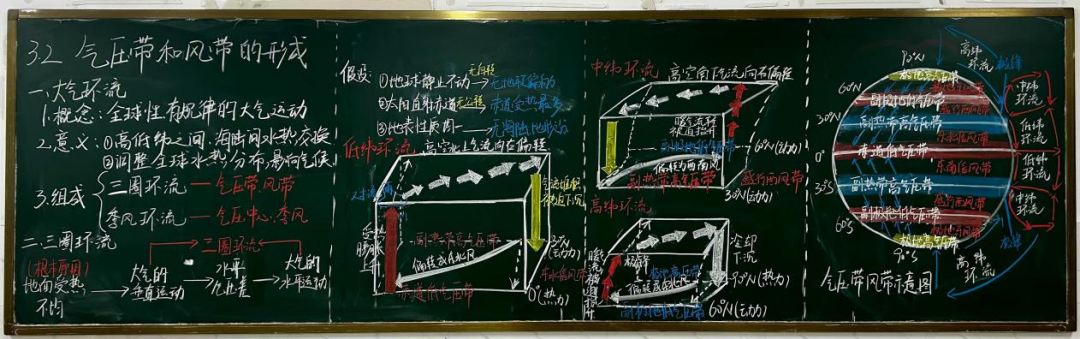 3.2 气压带和风带的形成
一.大气环流
1.概念:全球性有规律的大气运动
2.意义:①高低纬之间,海陆间水热交换
②调整全球水热分布,影响气候
3.组成
三圈环流—气压带.风带
季风环流—气压中心.季风
二.三圈环流
三圈环流
(根本原因)
地面受热
不均
大气的
垂直运动
水平
气压差
大气的
水平运动
假设:
①地球静止不动
无自转
无地转偏向力
②太阳直射赤道
无公转
赤道受热最多
③地表性质均一
无海陆地形
低纬环流
高空
气流向右偏转
受热
膨胀
上升
气流堆积
被迫下沉
副热带高气压带
偏转成东北风
赤道低气压带
东北信风带
30°N(动力)
0°(热力)
中纬环流
高空南下气流向右偏转
暖气流
被迫抬升
偏转为西南风
副热带高气压带
盛行西风带
60°N(动力)
30°N(动力)
高纬环流
暖气流被迫抬升
冷却
下沉
极地高气压带
90°N(热力)
副极地低气压带
60°N(动力)
90°N
60°N
30°N
0°
30°S
60°S
90°S
极地高气压带
副极地低气压带
副热带高气压带
东北信风带
赤道低气压带
东南信风带
副热带高气压带
盛行西风带
副极地低气压带
极地高气压带
高纬
环流
极锋
中纬
环流
低纬
环流
低纬
环流
中纬
环流
极锋
高纬
环流
气压带风带示意图